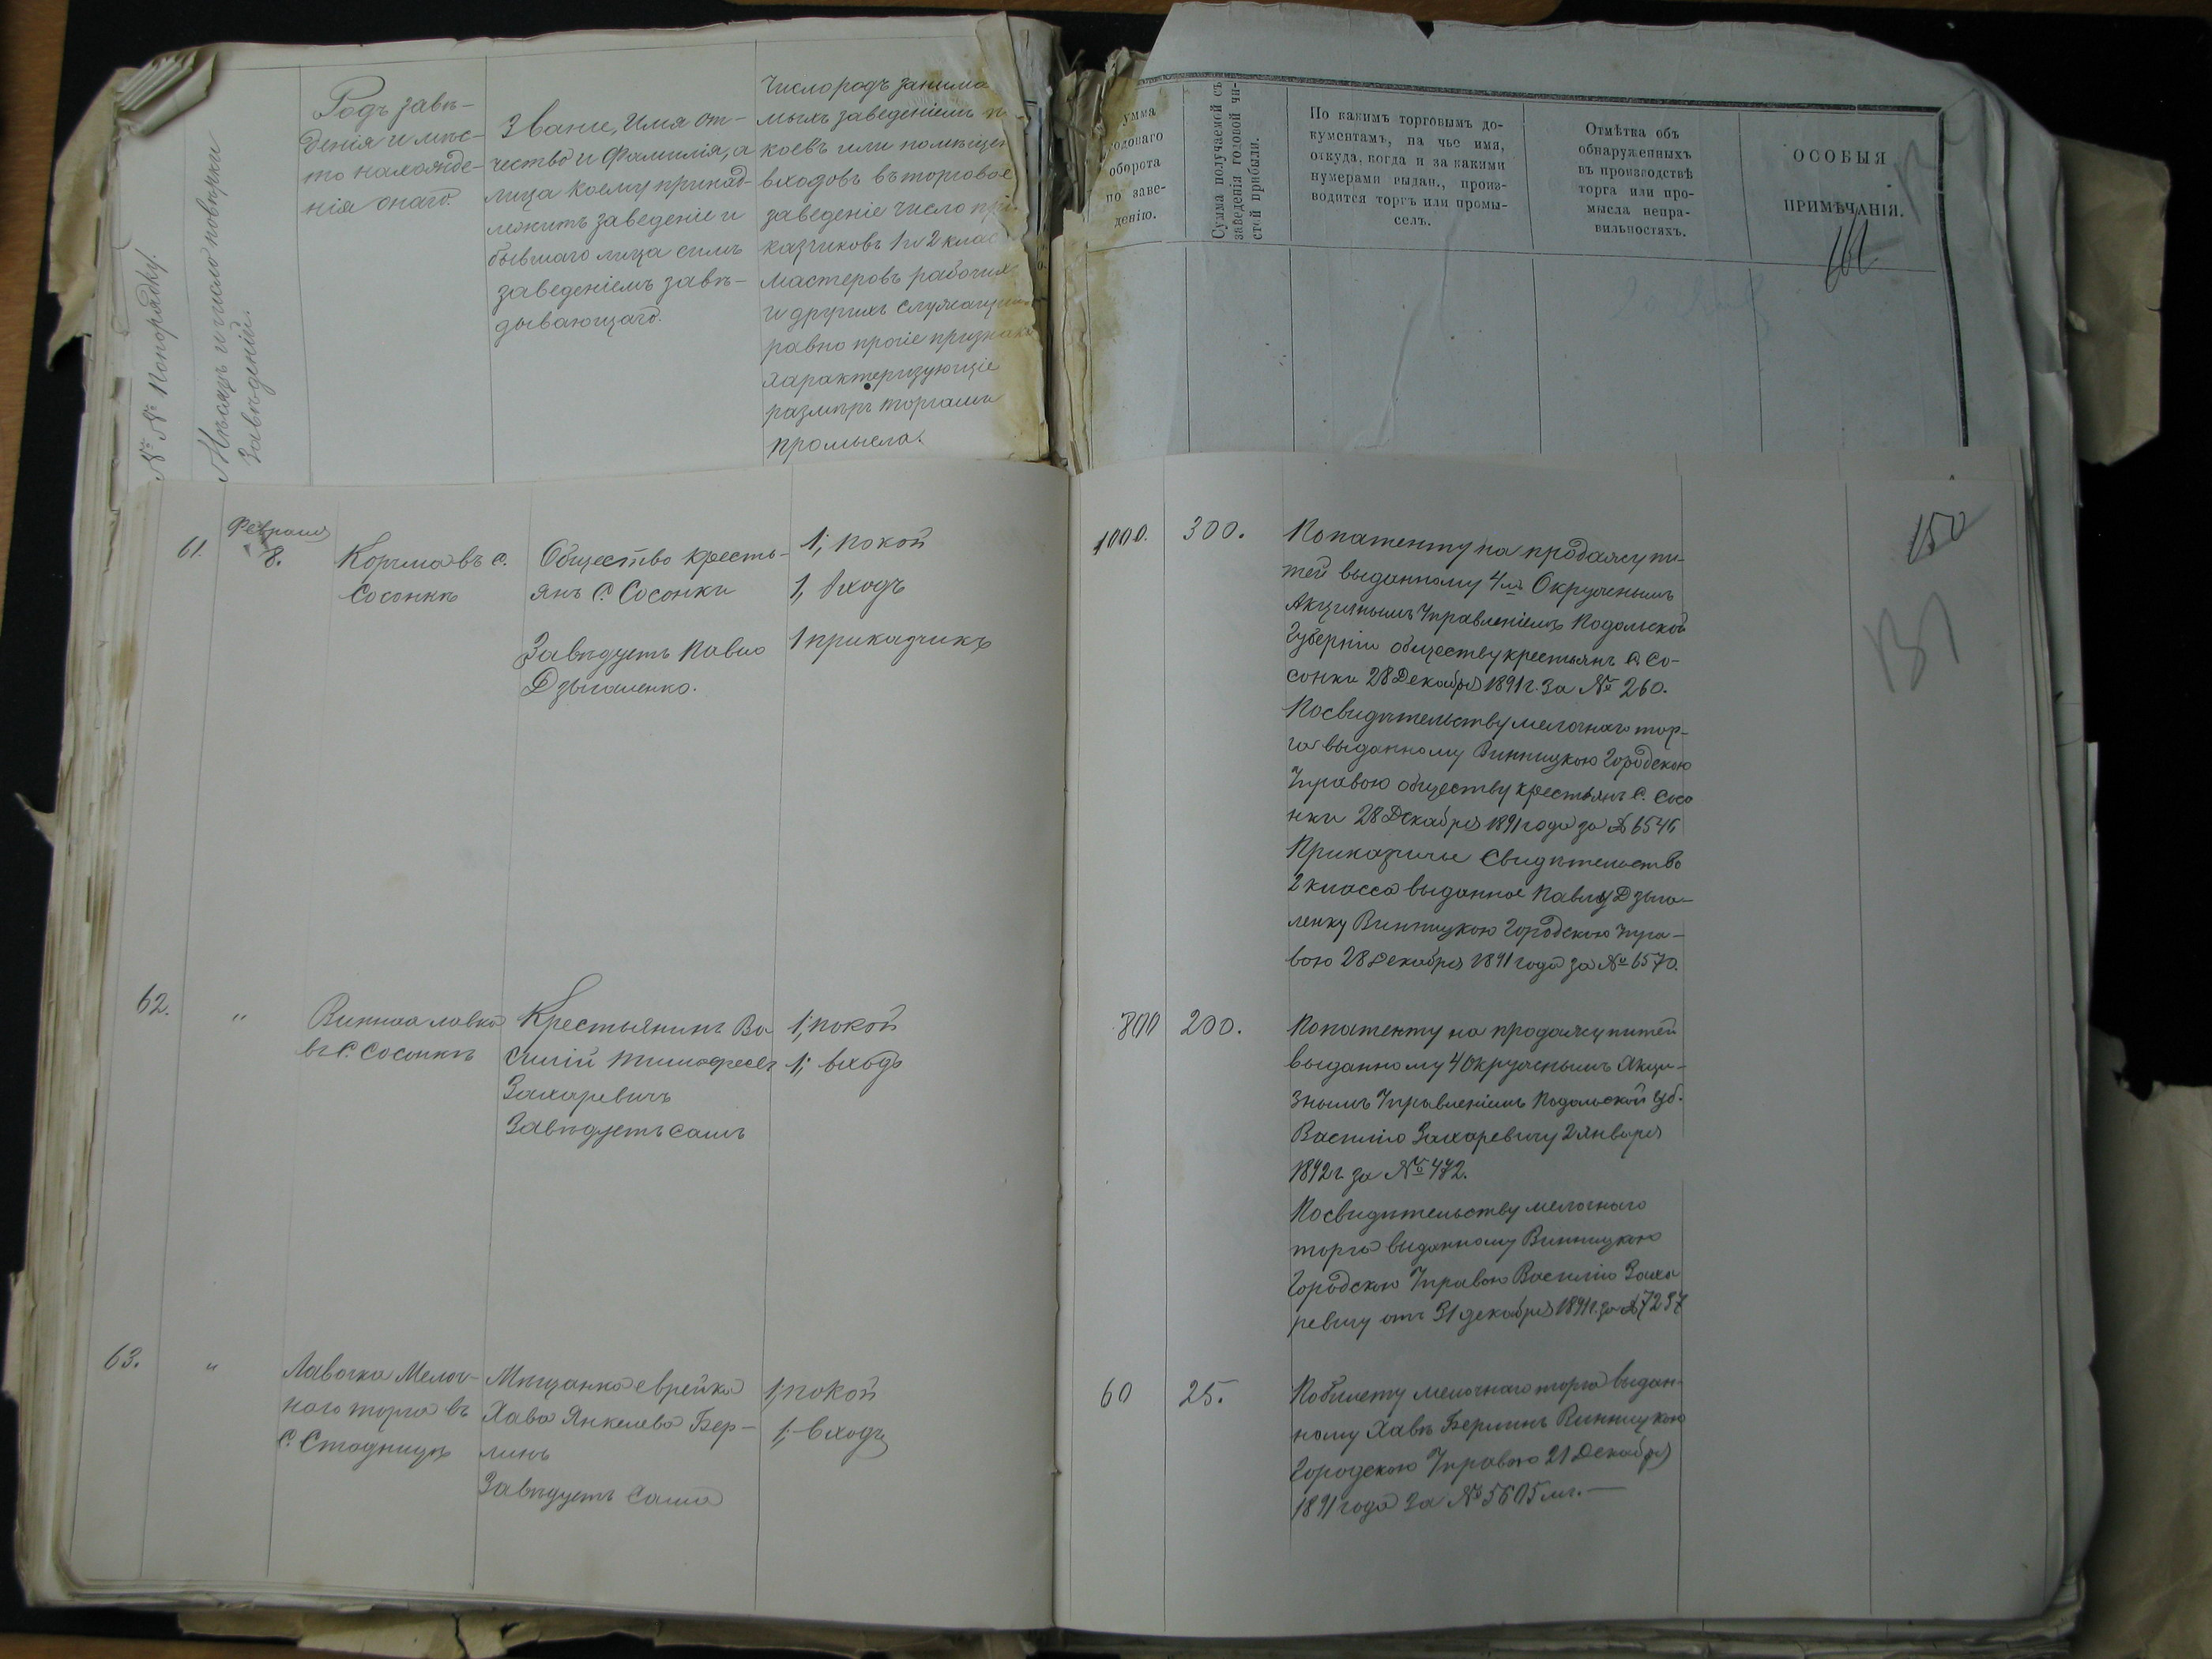 № № По порядку.
Мѣсяцъ и число повѣрки
Заведеній.
Родъ заве-
денія и мѣс-
то нахожде-
нія онаго
Званіе, Имя от-
чество и Фамилія, а
лица коему принад-
лежитъ заведеніе и
бывшаго лица симъ
заведеніемъ завѣ-
дывающаго.
Число родъ занима
мыхъ заведеніемъ по
коевъ или помѣщен
входовъ въ торговое
заведеніе число при
казчиковъ 1 и 2 клас
мастеровъ рабочихъ
и другихъ служащихъ
равно прочіе признаки
характеризующіе
размѣръ торга или
промысла.
умма
одоваго
оборота
по заве-
денію.
Сумма получаемой съ
заведенія годовой чи-
стой прибыли.
По какимъ торговымъ до-
кументамъ, на чье имя,
откуда, когда и за какими
нумерами выдан., произ-
водится торгъ или промы-
селъ.
Отмѣтка объ
обнаруженныхъ
въ производствѣ
торга или про-
мысла непра-
вильностяхъ.
ОСОБЫЯ
ПРИМѢЧАНІЯ.
61.
Февраля
8.
Корчма въ с.
Сосонкѣ
Общество кресть-
янъ С. Сосонки
Завѣдуетъ Павло
Дзыгаленко.
1; покой
1, входъ
1 прикадчикъ
1000.
300.
По патенту на продажу пи-
тей выданному 4мъ Окружнымъ
Акцизнымъ Управленіемъ Подольской
Губерніи обществу крестьянъ С. Со-
сонки 28 Декабря 1891 г. За № 260.
По свидѣтельству мелочнаго тор-
га выданному Винницкою Городскою
Управою обществу крестьянъ С. Сосо
нки 28 Декабря 1891 года за № 6546
Приказчичье Свидѣтельство
2 класса выданное Павлу Дзыга-
ленку Винницкою Городскою Упра-
вою 28 Декабря 1891 года за № 6570.
150
62.
"
Винная лавка
въ С. Сосонкѣ
Крестьянинъ Ва
силій Тимофеевъ
Захаревичъ
Завѣдуетъ самъ
1; покой
1; входъ
800
200.
По патенту на продажу питей
выданному 4 Окружнымъ Акци-
знымъ Управленіемъ Подольской губ.
Василію Захаревичу 2 Января
1892 г. за № 472.
По свидѣтельству мелочнаго
торга выданному Винницкою
Городскою Управою Василію Заха
ревичу отъ 31 декабря 1891 г. за № 7237
63.
"
Лавочка Мелоч-
наго торга въ
С. Стадницѣ
Мѣщанка еврейка
Хава Янкелева Бер-
линъ
Завѣдуетъ Сама
1; покой
1; входъ
60
25.
По билету мелочнаго торга выдан-
ному Хавѣ Берлинъ Винницкою
Городскою Управою 21 Декабря
1891 года За № 5605